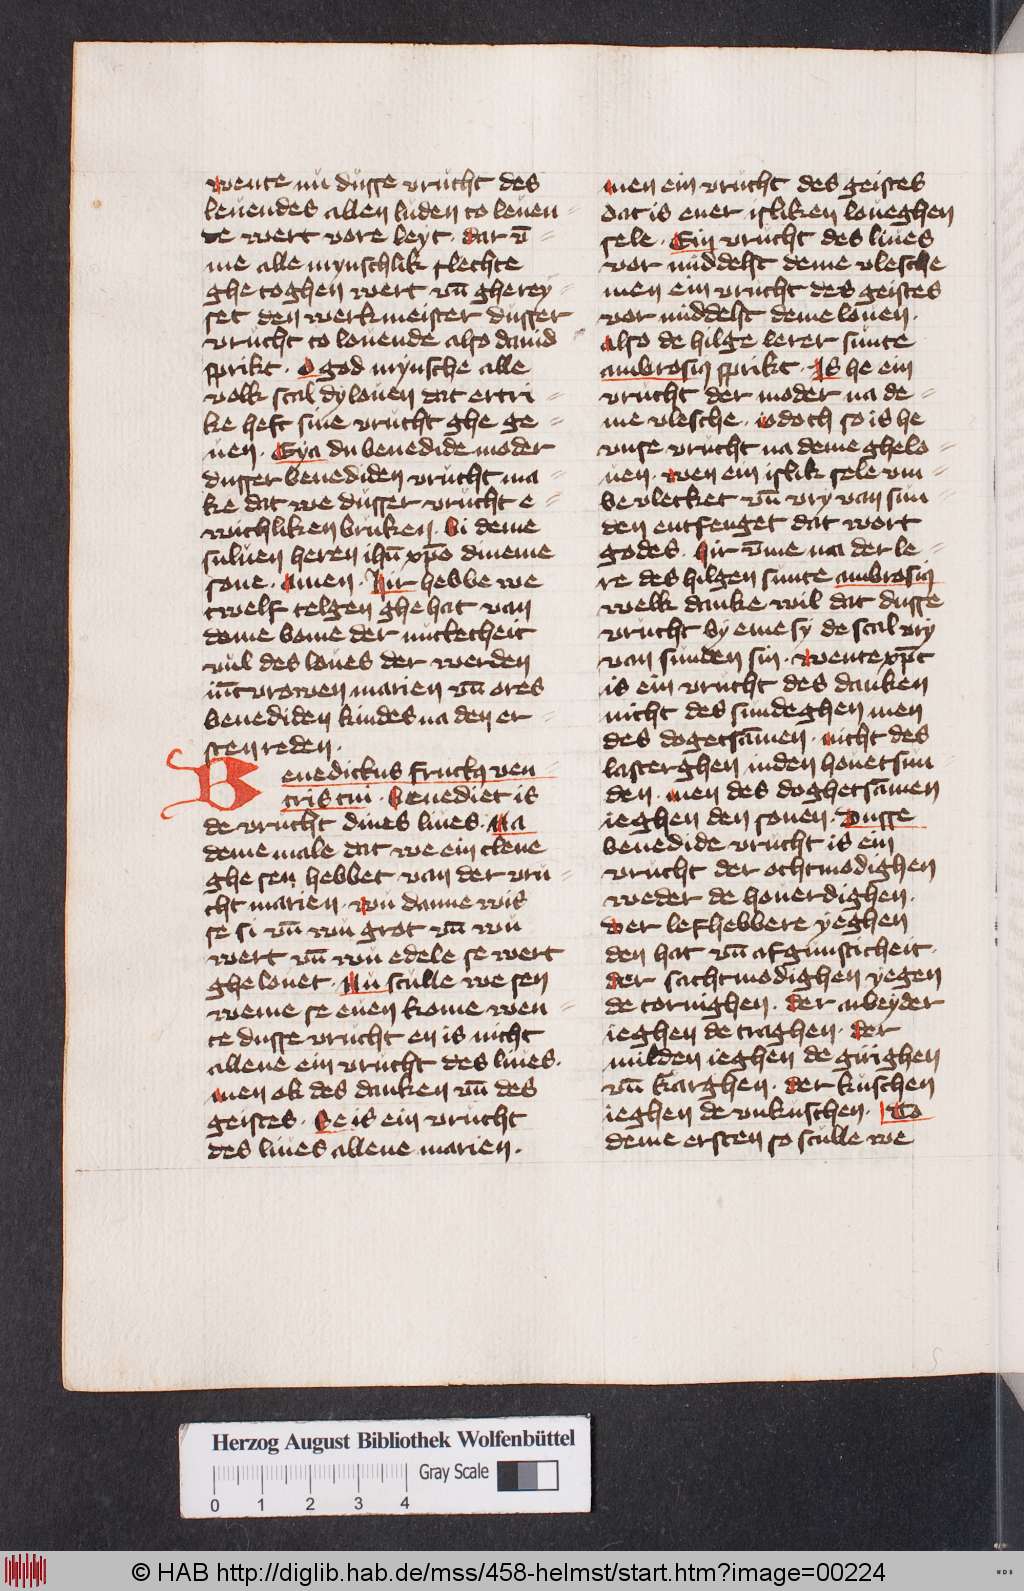 wente nu dusse vrucht des
leuendes allen luden to leuen
de wert vore leyt. dar v̄
me alle mynschlik slechte
ghe toghen wert vn̄ gherey
set den werkmeister dusser
vrucht to louende also dauid
sprikt. O god mynsche alle
volk scal dy louen dat ertri
ke heft sine vrucht ghe ge
uen. Eya du benedide moder
dusser benediden vrucht ma
ke dat we dusser vrucht e
wichliken bruken. bi deme
suluen heren ihū xp̄o dineme
sone. Amen. Hir hebbe we
twelf telgen ghe hat van
deme bome der nutticheit
vul des loues der werden
iūcvrowen marien vn̄ ores
benediden kindes na den er
sten reden.
Benedictus fructꝯ ven
tris tui. Benediet is
de vrucht dines liues. Na
deme male dat we ein clene
ghe sen hebbet van der vru
cht marien. wu danne wis
se si vn̄ wu grot vn̄ wu
wert vn̄ wu edele se wert
ghe louet. Nu sculle we sen
weme se euen kome wen
te dusse vrucht en is nicht
allene ein vrucht des liues.
men ok des danken vn̄ des
geistes. Se is ein vrucht
des liues allene marien.
men ein vrucht des geistes
dat is ener isliken loueghen
sele. Ein vrucht des liues
vor middelst deme vlesche
men ein vrucht des geistes
vor middelst deme louen.
also de hilge lerer sunte
ambrosiꝯ sprikt. Is he ein
vrucht der moder na de
me vlesche. Jodoch so is he
vnse vrucht na deme ghelo
uen. wen ein islik sele vm
bevlecket vn̄ vry van sun
den entfenget dat wort
godes. Hir v̄me na der le
re des hilgen sunte ambrosiꝯ
welk danke wil dat dusse
vrucht by eme sy de scal vry
van sunden sin. wente xp̄c
is ein vrucht des danken
nicht des sundeghen men
des dogetsāmen. nicht des
lasterghen inden houetsun
den. men des doghetsāmen
ieghen den souen. Dusse
benedide vrucht is ein
vrucht der othmodighen
weder de houerdighen.
der lefhebbere yeghen
den hat vn̄ afgunsticheit.
der sachtmodighen yegen
de tornighen. der arbeyder
ieghen de traghen. der
milden ieghen de girighen
vn̄ karghen. der kuschen
ieghen de vnkuschen. To
deme ersten so sculle we
Herzog August Bibliothek Wolfenbüttel
Gray Scale
0 1 2 3 4
© HAB http://diglib.hab.de/mss/458-helmst/start.htm?image=00224